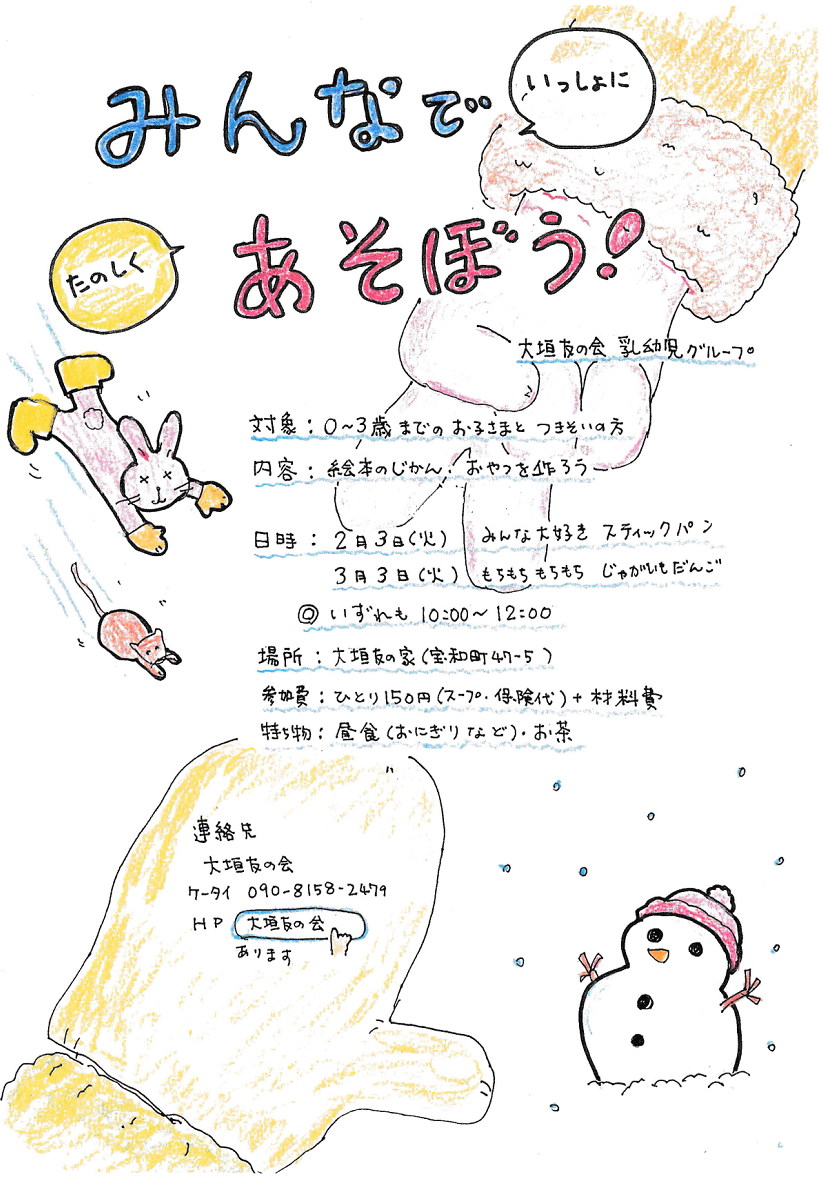 みんなで
いっしょに
たのしく
あそぼう!
大垣友の会 乳幼児グループ
対象：0〜3歳までのお子さまと つきそいの方
内容：絵本のじかん・おやつを作ろう
日時：2月3日(火) みんな大好き スティックパン
3月3日(火) もちもちもちもち じゃがいもだんご
◎いずれも 10:00〜12:00
場所：大垣友の家(宝和町47-5)
参加費：ひとり150円(スープ・保険代)+材料費
持ち物：昼食(おにぎりなど)・お茶
連絡先
大垣友の会
ケータイ 090-8158-2479
HP 大垣友の会
あります